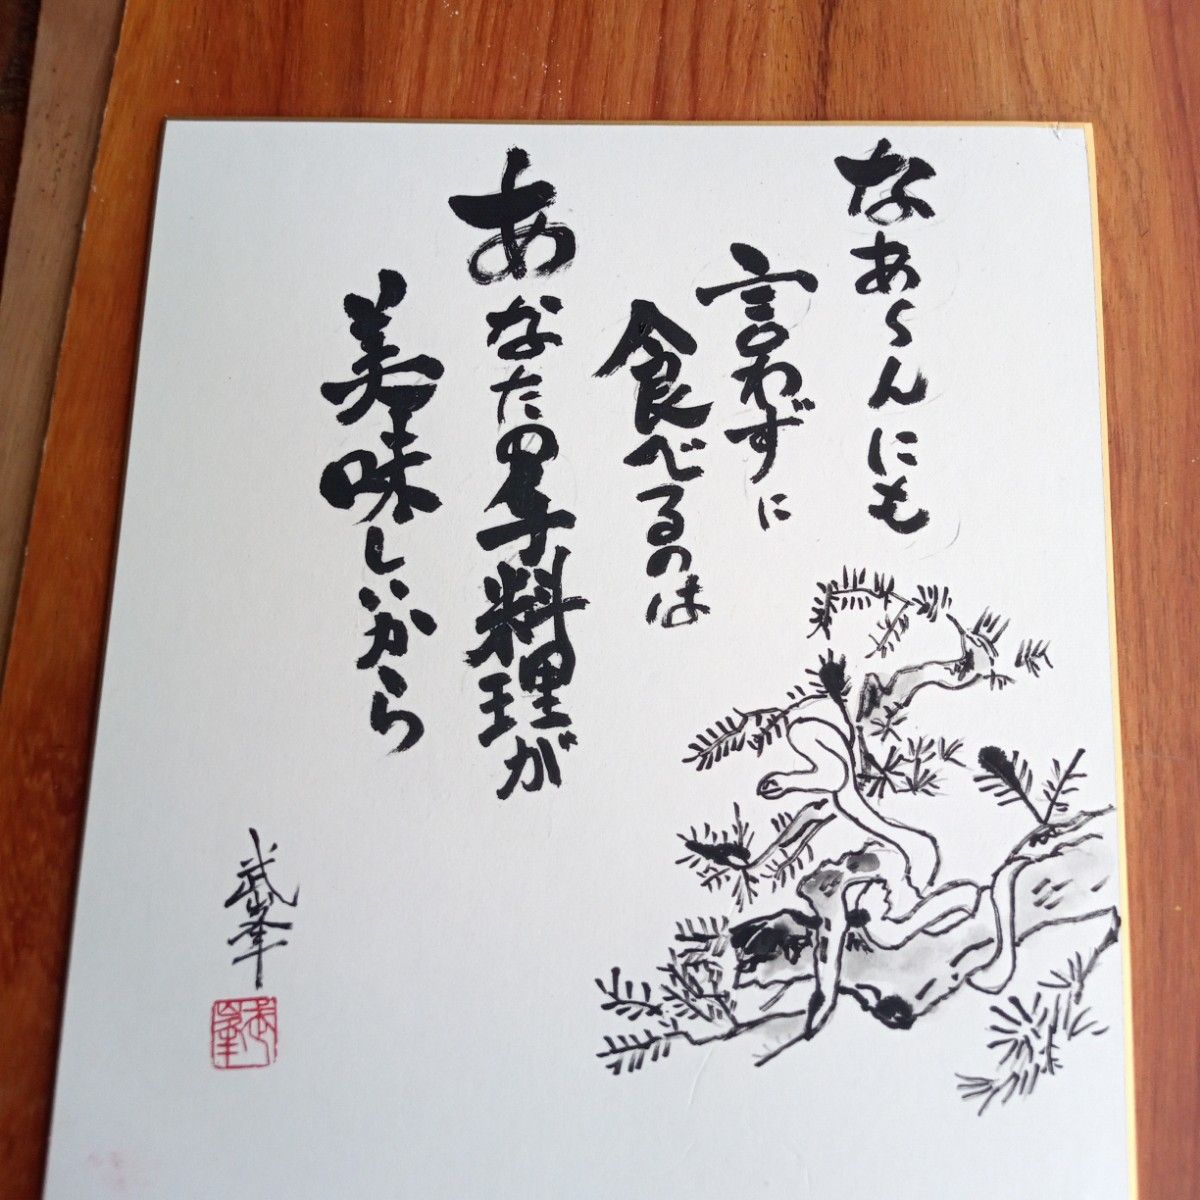 なあ~んにも
言わずに
食べるのは
あなたの手料理が
美味しいから
武峯